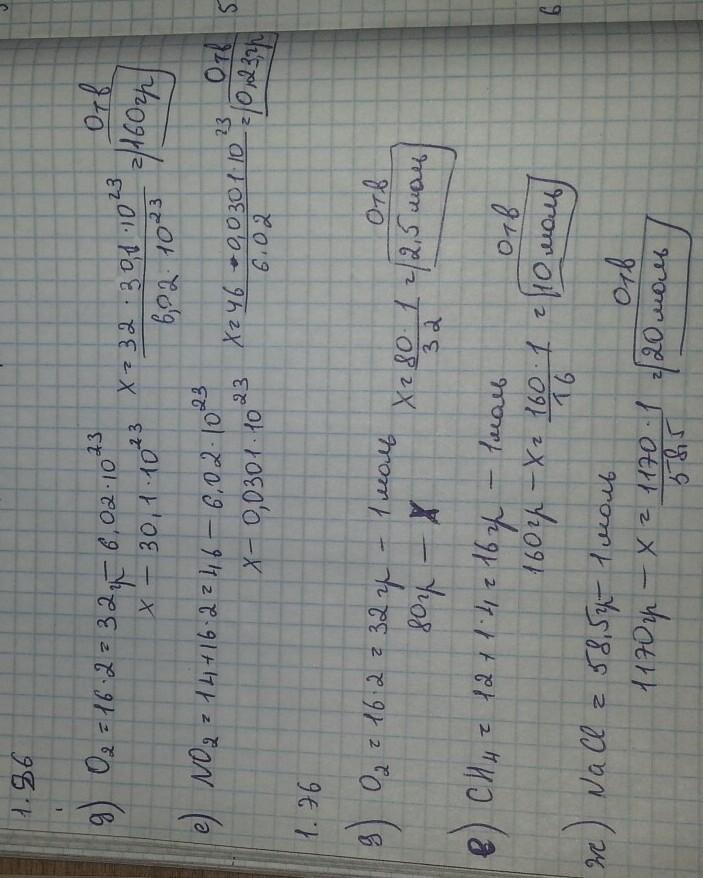 1.56
д) O₂ = 16·2 = 32гр – 6,02·10²³
x – 30,1·10²³
x = 32·30,1·10²³ / 6,02·10²³ = 160гр
Отв
е) NO₂ = 14+16·2 = 46 – 6,02·10²³
x – 0,0301·10²³
x = 46·0,0301·10²³ / 6.02 = 0,23гр
Отв
1.76
д) O₂ = 16·2 = 32гр – 1моль
80гр – x
x = 80·1 / 32 = 2,5 моль
Отв
в) CH₄ = 12+1·4 = 16гр – 1моль
160гр – x = 160·1 / 16 = 10моль
Отв
ж) NaCl = 58,5гр – 1моль
1170гр – x = 1170·1 / 58,5 = 20моль
Отв
5
в